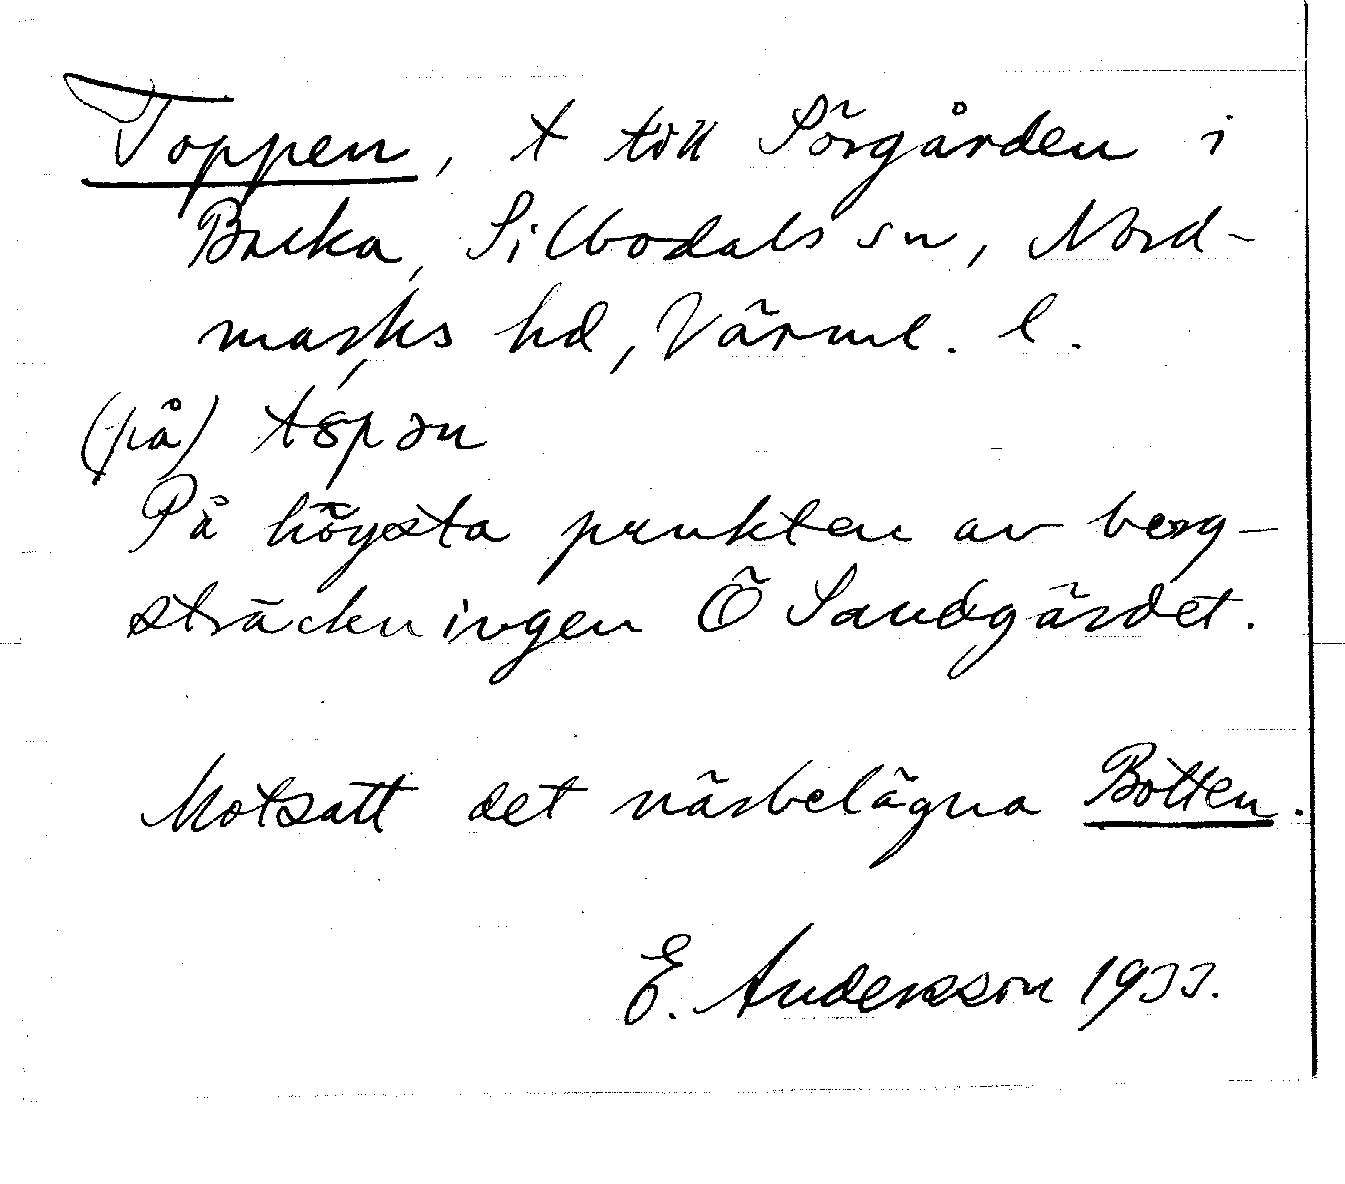 Toppen, t till Sörgården i
Backa, Silbodals sn, Nord-
marks hd, Värml. l.
(på) t8pən
På högsta punkten av berg-
sträckningen Ö Sandgärdet.
Motsatt det närbelägna Botten.
E. Andersson 1933.